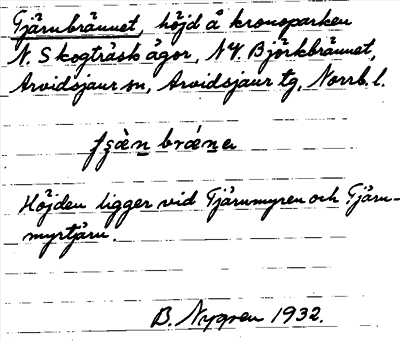 Tjärnbrännet, höjd å kronoparken
N. Skogträsk ägor, NV. Björkbrännet,
Arvidsjaur sn, Arvidsjaur tg, Norrb. l.
Höjden ligger vid Tjärnmyren och Tjärn-
myrtjärn.
B. Nygren 1932.